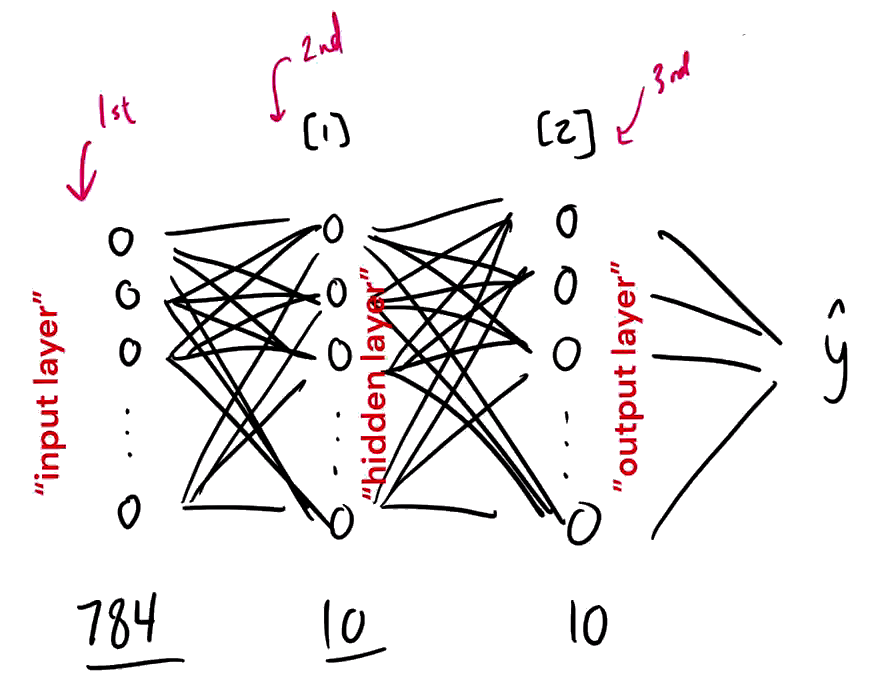 1st
2nd
3rd
[1]
[2]
"input layer"
"hidden layer"
"output layer"
ŷ
784
10
10